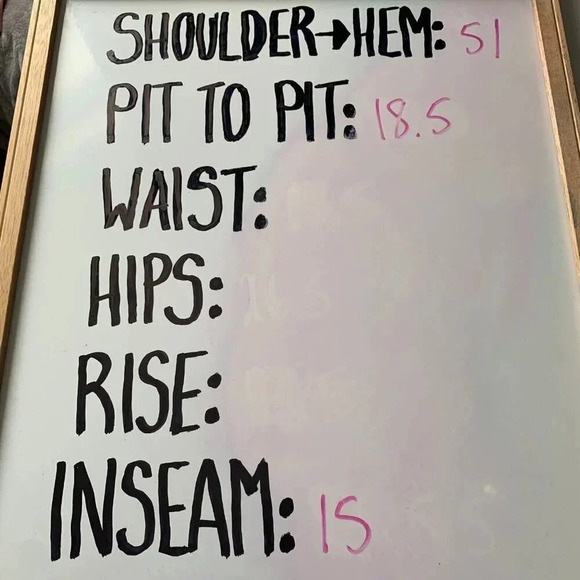 SHOULDER→HEM: 51
PIT TO PIT: 18.5
WAIST:
HIPS:
RISE:
INSEAM: 15